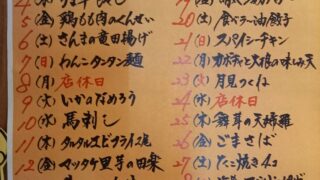 5 (金) 鶏もも肉のくんせい
6 (土) さんまの竜田揚げ
7 (日) わんこタンタン麺
8 (月) 店休日
9 (火) いかのなめろう
10 (水) 馬刺し
11 (木) タルタルエビフライ2尾
12 (金) マッタケ里芋の田楽
20 (土) 食べラー油餃子
21 (日) スパイシーチキン
22 (月) カボチャと大根の味しみ天
23 (火) 月見つくね
24 (水) 店休日
25 (木) 舞茸の天婦羅
26 (金) ごまさば
27 (土) たこ焼き4コ